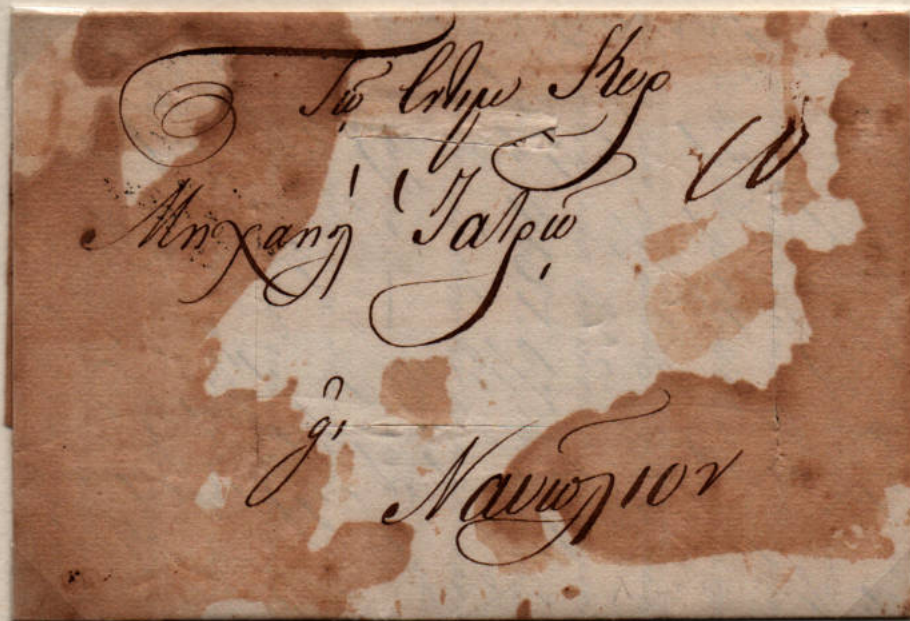 Τῷ ἐντίμῳ Κυρ
Μηχαήλ Ἰατρῷ
Ναυπλιον